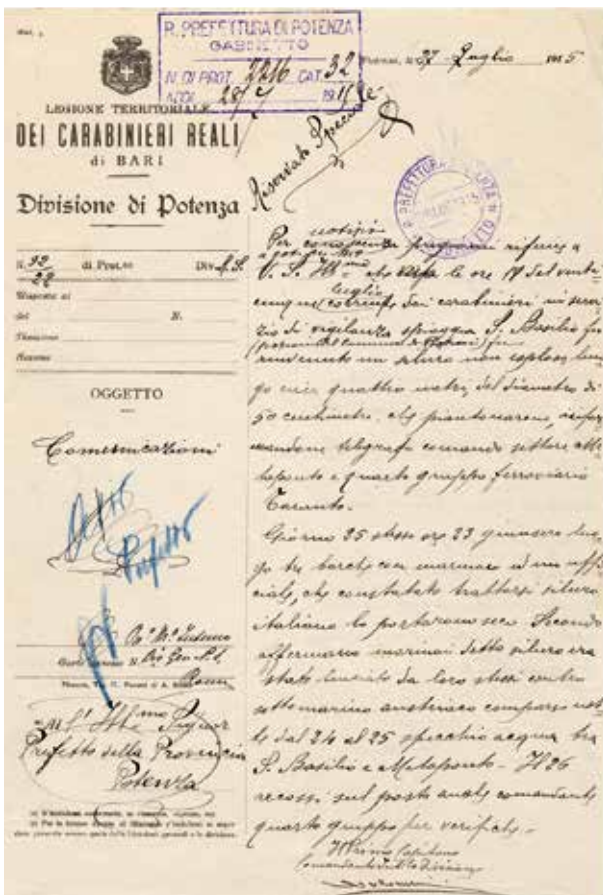 R. PREFETTURA DI POTENZA
GABINETTO
N. DI PROT. 2216 CAT. 32
ADDI 28/7 1915
27 Luglio 1915
LEGIONE TERRITORIALE
DEI CARABINIERI REALI
di BARI
Divisione di Potenza
N. 92/22 di Prot.
Risposta al
del N.
OGGETTO
Comunicazioni
Prefetto
All'Ill.mo Signor
Prefetto della Provincia
Potenza
Riservata Speciale
notizia
Per conoscenza pregiomi riferire a
V. S. Ill.ma che verso le ore 17 del venti
cinque corrente dai carabinieri in servi
luglio
zio di vigilanza spiaggia S. Basilio fu
rinvenuto un siluro non esploso lun
go circa quattro metri del diametro di
50 centimetri, che piantonarono, infor
mandone telegrafo comando settore Me
taponto e quarto gruppo ferroviario
Taranto.
Giorno 25 stesso ore 23 giunsero luo
go tre barche con marinai ed un uffi
ciale, che constatato trattarsi siluro
italiano lo portarono seco. Secondo
affermano marinai detto siluro era
stato lanciato da loro stessi contro
sottomarino austriaco comparso not
te dal 24 al 25 specchio acqua tra
S. Basilio e Metaponto - Il 26
recossi sul posto anche comandante
quarto gruppo per verifiche.
Il Primo Capitano
Comandante della Divisione